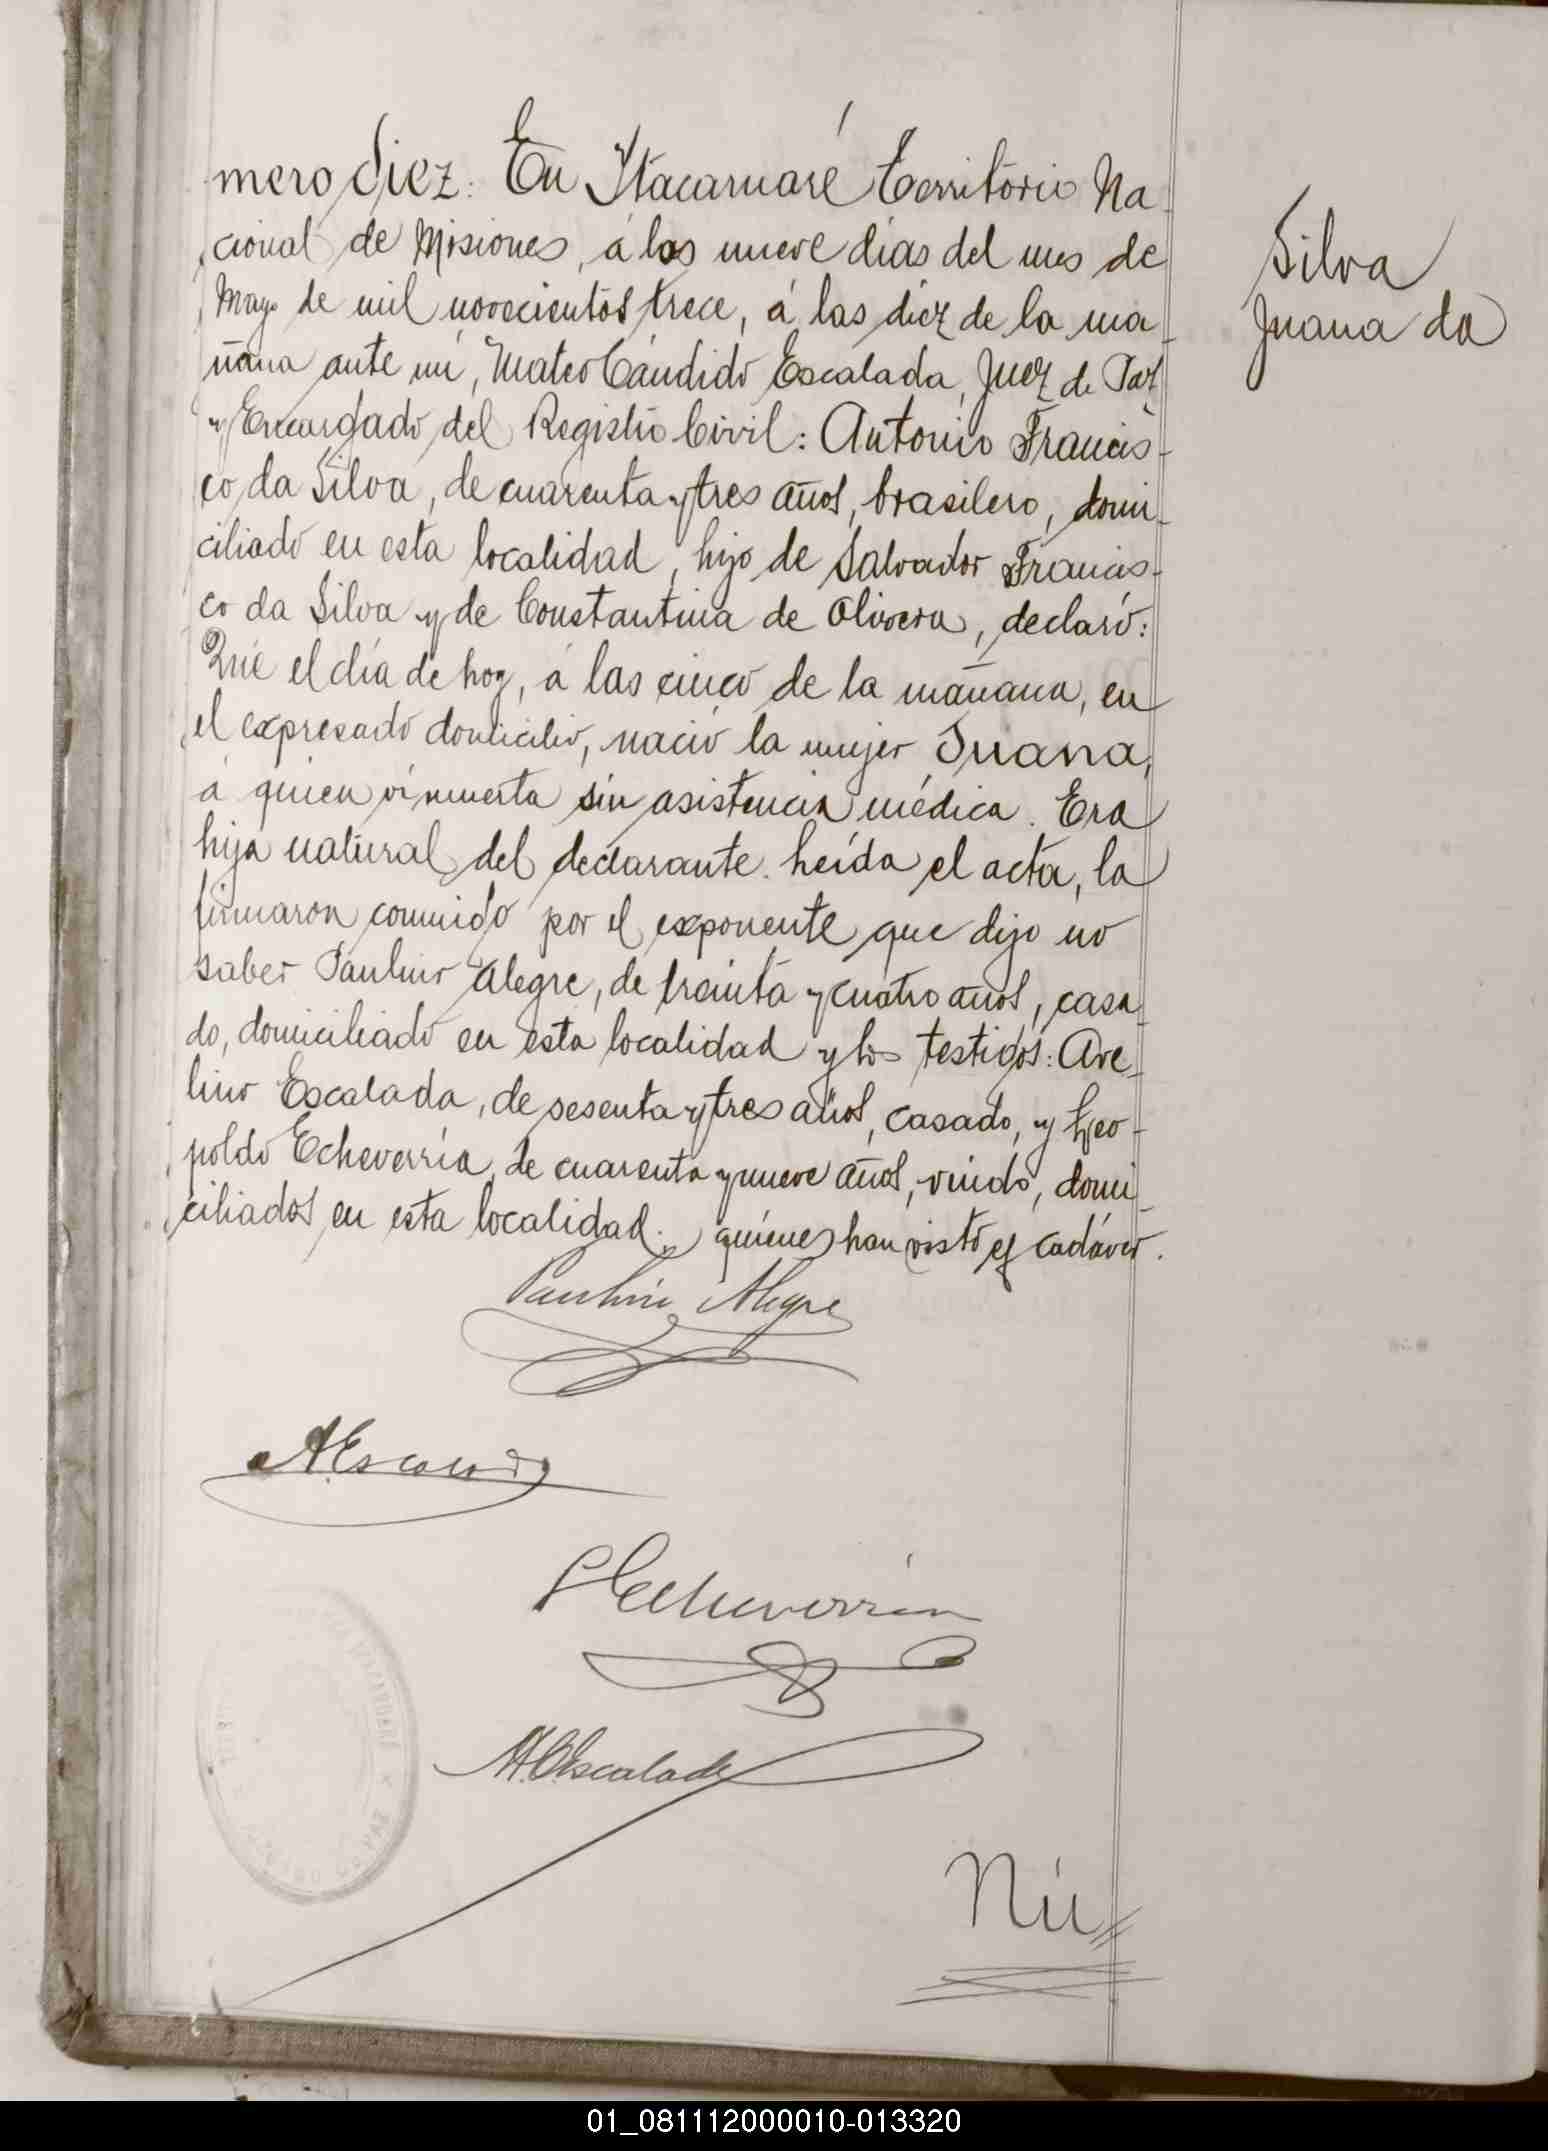 mero diez. En Ytacaruaré Territorio Na-
cional de Misiones, á los nueve dias del mes de
Mayo de mil novecientos trece, á las diez de la ma-
ñana ante mi, Mateo Cándido Escalada, Juez de Paz
y Encargado del Registro Civil: Antonio Francis-
co da Silva, de cuarenta y tres años, brasilero, domi-
ciliado en esta localidad, hijo de Salvador Francis-
co da Silva y de Constantina de Olivera, declaró:
Que el día de hoy, á las cinco de la mañana, en
el expresado domicilio, nació la mujer Juana,
á quien vi muerta sin asistencia médica. Era
hija natural del declarante. Leída el acta, la
firmaron conmigo por el exponente que dijo no
saber Paulino Alegre, de treinta y cuatro años, casa-
do, domiciliado en esta localidad y los testigos: Ave-
lino Escalada, de sesenta y tres años, casado, y Leo-
poldo Echeverría, de cuarenta y nueve años, viudo, domi-
ciliados en esta localidad. quiénes han visto el cadáver.
Silva
Juana da
Paulino Alegre
A. Escalada
L Echeverría
M.C. Escalada
Nú
01_081112000010-013320